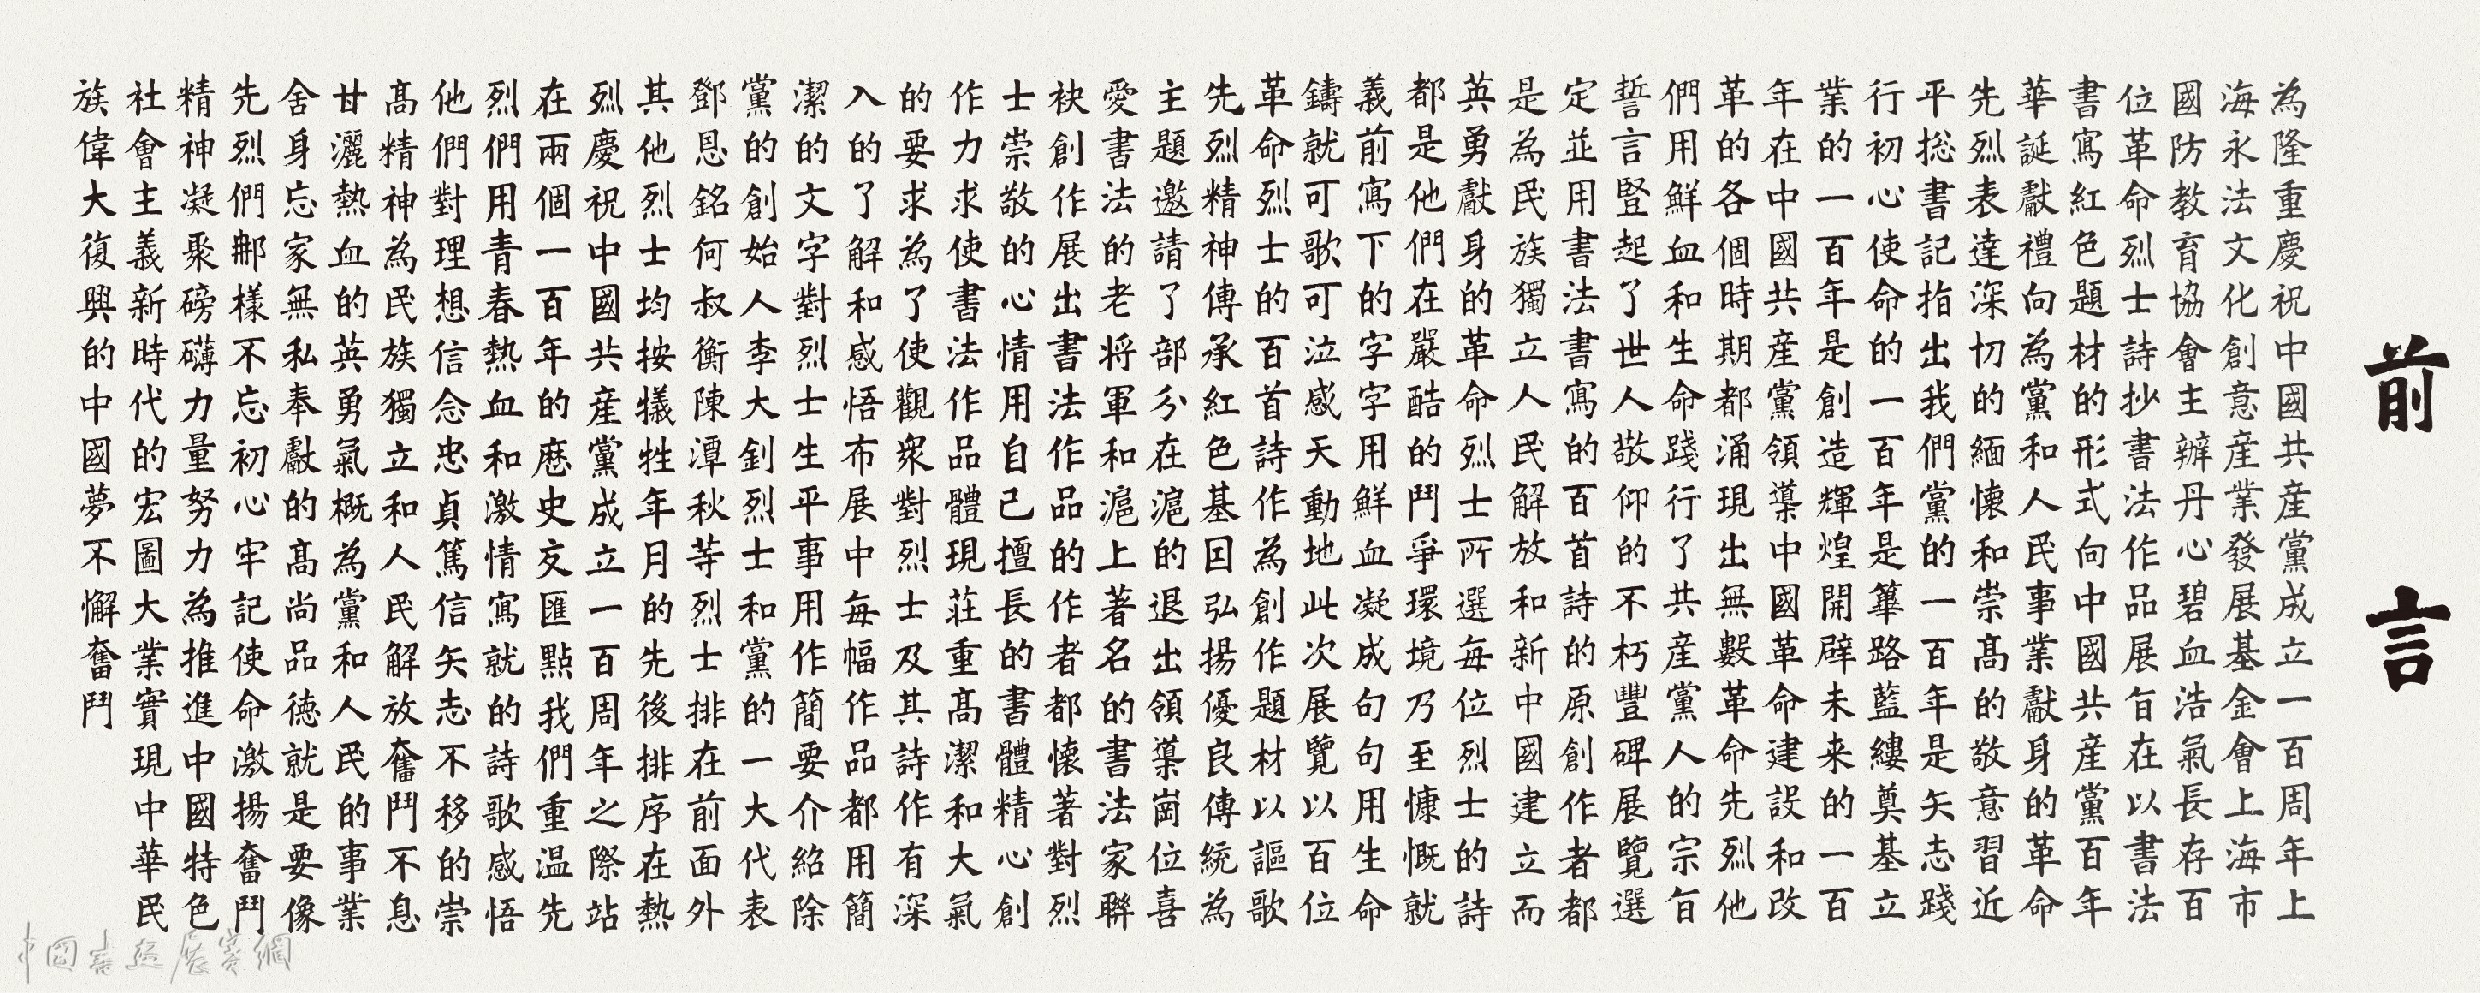 前言
為隆重慶祝中國共産黨成立一百周年上
海永法文化創意産業發展基金會上海市
國防教育協會主辦丹心碧血浩氣長存百
位革命烈士詩抄書法作品展旨在以書法
書寫紅色題材的形式向中國共産黨百年
華誕獻禮向為黨和人民事業獻身的革命
先烈表達深切的緬懷和崇高的敬意習近
平総書記指出我們黨的一百年是矢志踐
行初心使命的一百年是篳路藍縷奠基立
業的一百年是創造輝煌開辟未来的一百
年在中國共産黨領導中國革命建設和改
革的各個時期都涌現出無數革命先烈他
們用鮮血和生命踐行了共産黨人的宗旨
誓言豎起了世人敬仰的不朽豐碑展覽選
定並用書法書寫的百首詩的原創作者都
是為民族獨立人民解放和新中國建立而
英勇獻身的革命烈士所選每位烈士的詩
都是他們在嚴酷的鬥爭環境乃至慷慨就
義前寫下的字字用鮮血凝成句句用生命
鑄就可歌可泣感天動地此次展覽以百位
革命烈士的百首詩作為創作題材以謳歌
先烈精神傳承紅色基因弘揚優良傳統為
主題邀請了部分在滬的退出領導崗位喜
愛書法的老将軍和滬上著名的書法家聯
袂創作展出書法作品的作者都懷著對烈
士崇敬的心情用自己擅長的書體精心創
作力求使書法作品體現莊重高潔和大氣
的要求為了使觀衆對烈士及其詩作有深
入的了解和感悟布展中每幅作品都用簡
潔的文字對烈士生平事用作簡要介紹除
黨的創始人李大釗烈士和黨的一大代表
鄧恩銘何叔衡陳潭秋等烈士排在前面外
其他烈士均按犧牲年月的先後排序在熱
烈慶祝中國共産黨成立一百周年之際站
在兩個一百年的歷史交匯點我們重温先
烈們用青春熱血和激情寫就的詩歌感悟
他們對理想信念忠貞篤信矢志不移的崇
高精神為民族獨立和人民解放奮鬥不息
甘灑熱血的英勇氣概為黨和人民的事業
舍身忘家無私奉獻的高尚品德就是要像
先烈們那樣不忘初心牢記使命激揚奮鬥
精神凝聚磅礴力量努力為推進中國特色
社會主義新時代的宏圖大業實現中華民
族偉大復興的中國夢不懈奮鬥
中國書法展賽網